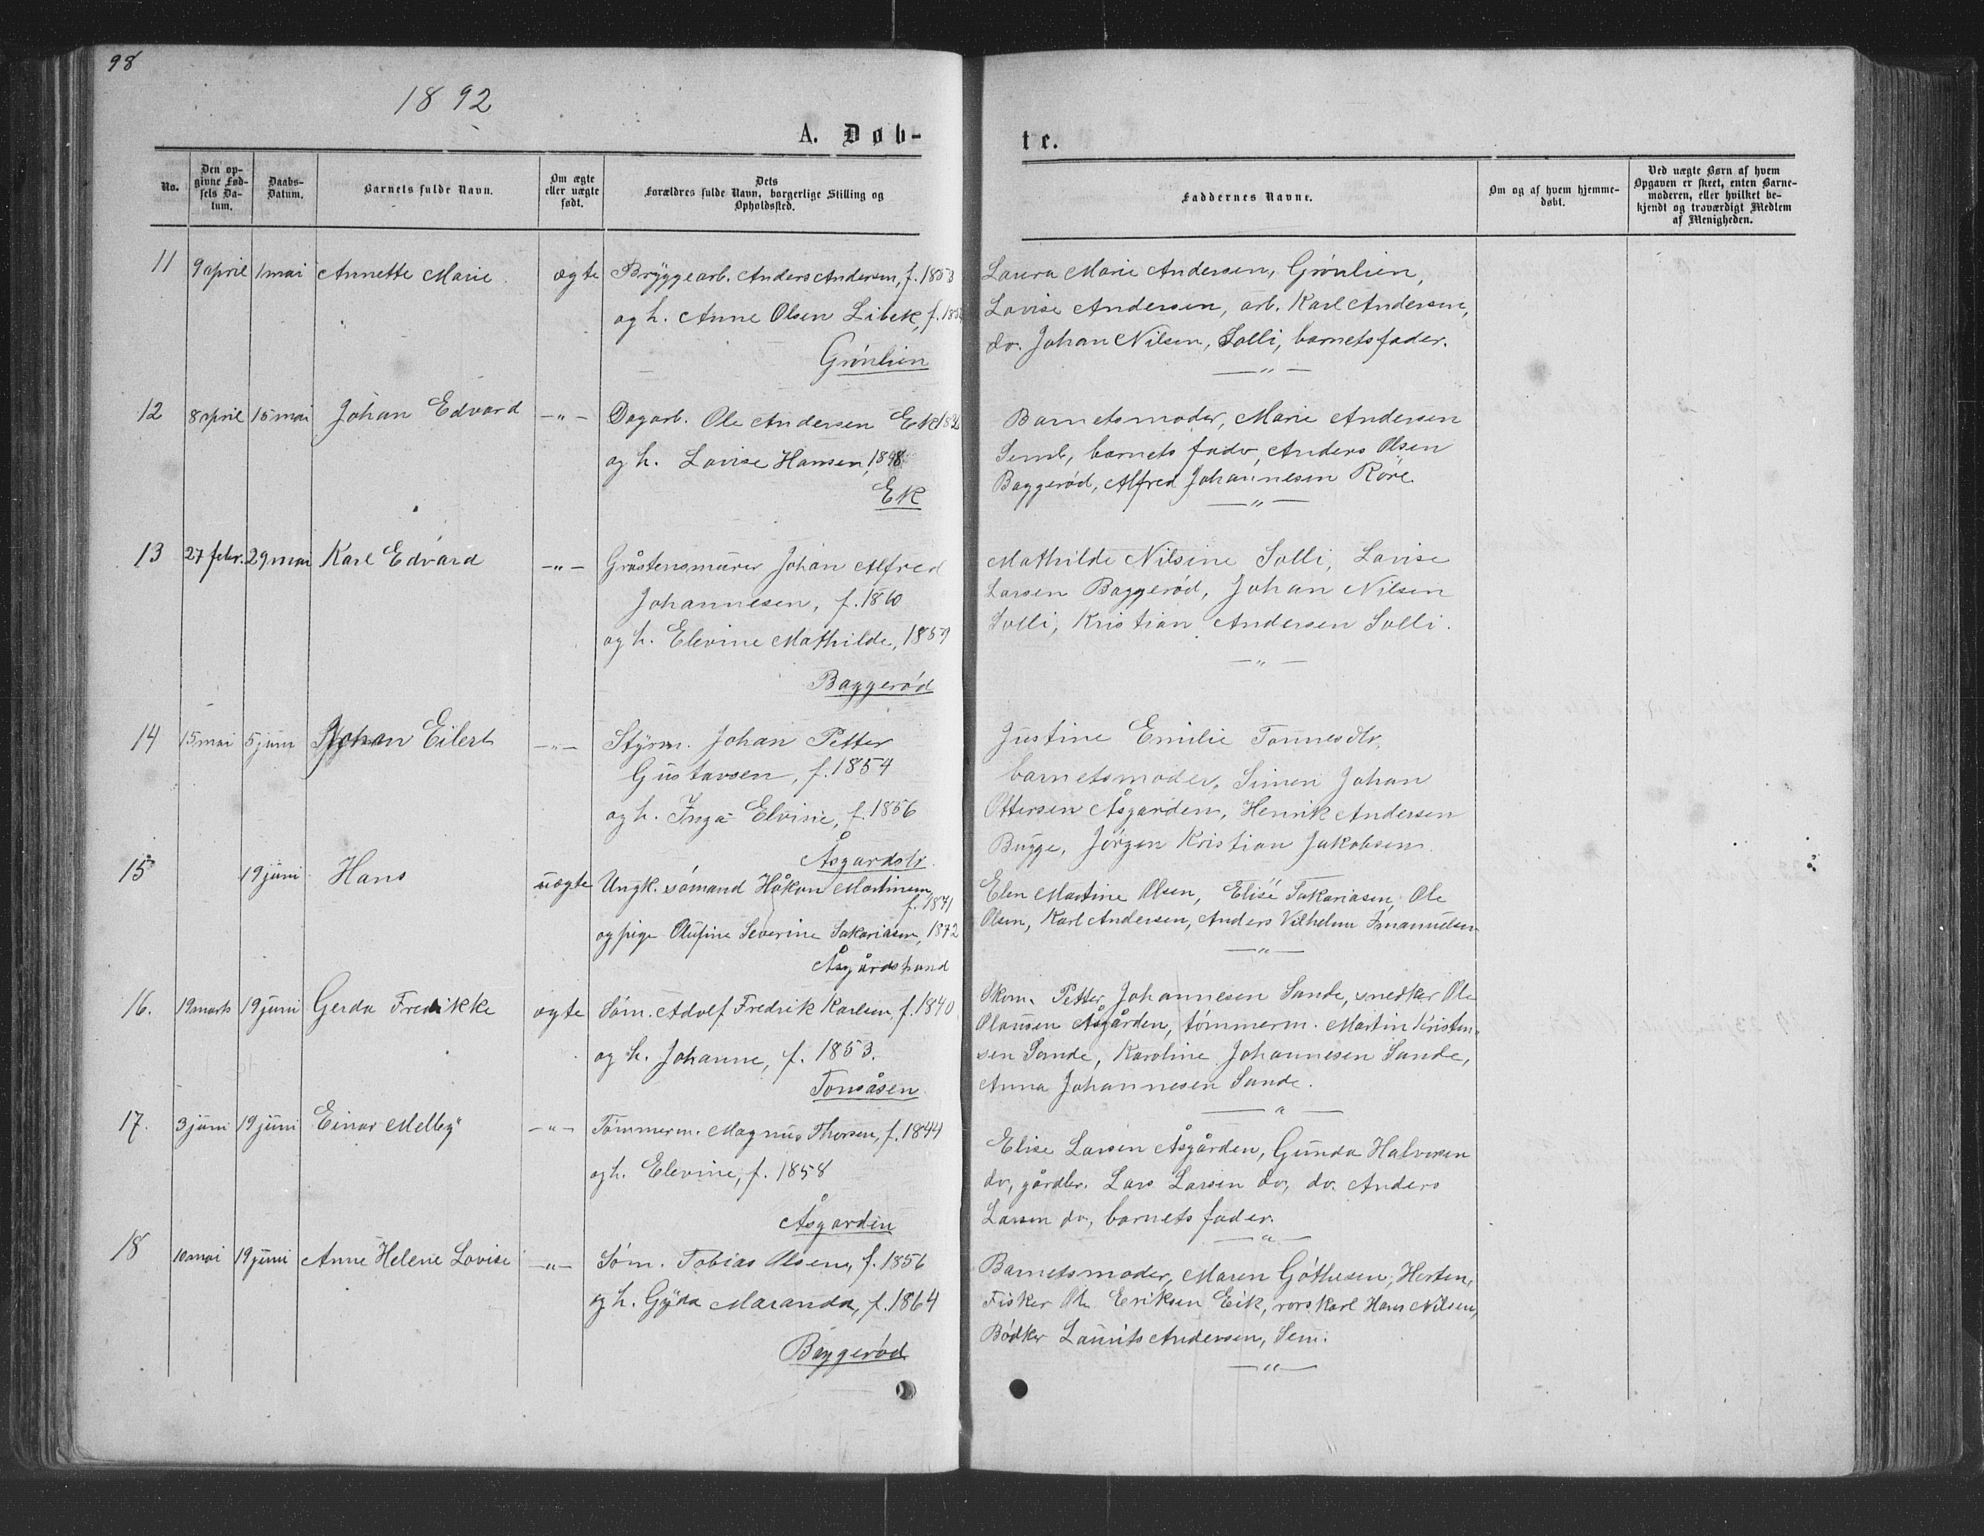 98
1892
A. Døb-
te.
No.
Den op-
givne Fød-
sels Da-
tum.
Daabs-
Datum.
Barnets fulde Navn.
Om ægte
eller uægte
født.
Dets
Forældres fulde Navn, borgerlige Stilling og
Opholdssted.
Faddernes Navne.
Om og af hvem hjemme-
døbt.
Ved uægte Børn af hvem
Opgaven er skeet, enten Barne-
moderen, eller hvilket be-
kjendt og troværdigt Medlem
af Menigheden.
11 9 april 1 mai Annette Marie ægte Bryggearb. Anders Andersen, f. 1853
og h. Anne Olsen Libek, f.
Grønlien
Laura Marie Andersen, Grønlien,
Lovise Andersen, arb. Karl Andersen,
do. Johan Nilsen, Solli, barnets fader.
—„—
12 8 april 15 mai Johan Edvard —„— Dagarb. Ole Andersen Ek
og h. Lovise Hansen,
Ek
Barnets moder, Marie Andersen
Semb, barnets fader, Anders Olsen
Baggerød, Alfred Johannesen Røre.
—„—
13 27 febr. 29 mai Karl Edvard —„— Gråstensmurer Johan Alfred
Johannesen, f. 1860
og h. Elevine Mathilde, 1859
Baggerød
Mathilde Nilsine Solli, Lovise
Larsen Baggerød, Johan Nilsen
Solli, Kristian Andersen Solli.
—„—
14 15 mai 5 juni Johan Eilert —„— Styrm. Johan Petter
Gustavsen, f. 1854
og h. Inga Elvine, f. 1856
Åsgardstr.
Justine Emilie Tonnesdtr,
barnets moder, Simen Johan
Ottersen Åsgarden, Henrik Andersen
Bugge, Jørgen Kristian Jakobsen.
15 19 juni Hans uægte Ungk. sømand Håkon Martinsen,
f. 1871
og pige Olufine Severine Sakariasen, 1872
Åsgårdstrand
Elen Martine Olsen, Elise Sakariasen, Ole
Olsen, Karl Andersen, Anders Vilhelm Imanuelsen
—„—
16. 19 marts 19 juni Gerda Fredrikke ægte Søm. Adolf Fredrik Karlsen, f. 1840
og h. Johanne, f. 1853.
Tomsåsen
Skom. Petter Johannesen Sande, snedker Ole
Olausen Åsgården, tømmerm. Martin Kristen-
sen Sande, Karoline Johannesen Sande,
Anna Johannesen Sande.
—„—
17. 3 juni 19 juni Einar Melby —„— Tømmerm. Magnus Thorsen, f. 1844
og h. Elevine, f. 1858
Åsgarden
Elise Larsen Åsgården, Gunda Halvorsen
do, gårdbr. Lars Larsen do, do. Anders
Larsen do, barnets fader.
—„—
18 10 mai 19 juni Anne Helene Lovise —„— Søm. Tobias Olsen, f. 1856
og h. Gyda Maranda, f. 1864
Baggerød
Barnets moder, Maren Gøthesen, Horten,
Fisker Ole Eriksen Eik, rorskarl Hans Nilsen,
Bødker Laurits Andersen, Sem.
—„—